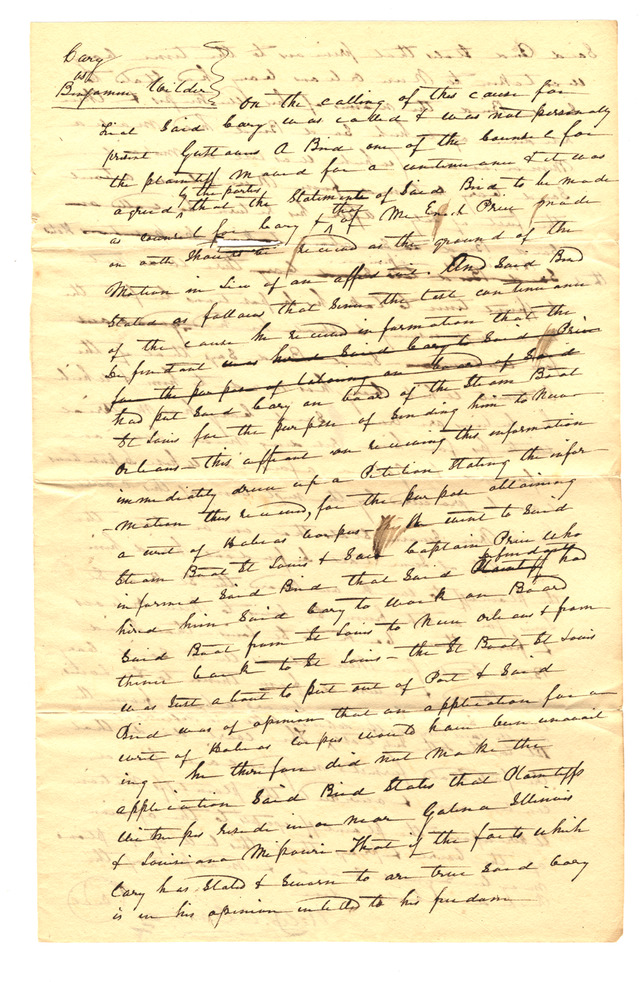 Cary
vs
Benjamin Wilder
On the calling of this cause for
trial Said Cary was called & was not personaly
present Gustavus A Bird one of the Counsel for
the plaintiff Moved for a continuance & it was
by the parties
agreed that the Statements of Said Bird to be made
as counsel for Cary & that of Mr Enoch Price made
on oath Should be received as the ground of the
Motion in Lieu of an affidavit. And Said Bird
Stated as follows that Since the last continuance
of the cause he received information that the
defendant was hired Said Cary to Said Price
for the purpose of taking on board of Said
had put Said Cary on board of the Steam Boat
St Louis for the purpose of Sending him to New
Orleans – this affiant on receiving this information
immediatly drew up a Petition Stating the infor
-mation thus received, for the purpose obtaining
a writ of Habeas Corpus – he went to Said
Steam Boat St Louis & Said Captain Price who
defendant
informed Said Bird that Said Plaintiff had
hired him Said Cary to work on Board
Said Boat from St Louis to New Orleans & from
thence back to St Louis – the St Boat St Louis
was Just about to put out of Port & Said
Bird was of opinion that an application for a
writ of Habeas Corpus would have been unavail
ing – he therefore did not Make the
application Said Bird States that Plaintiffs
Witnesses reside in or near Galena Illinois
& Louisiana Missouri – that if the facts which
Cary has Stated & Sworn to are true Said Cary
is in his opinion intitled to his freedom